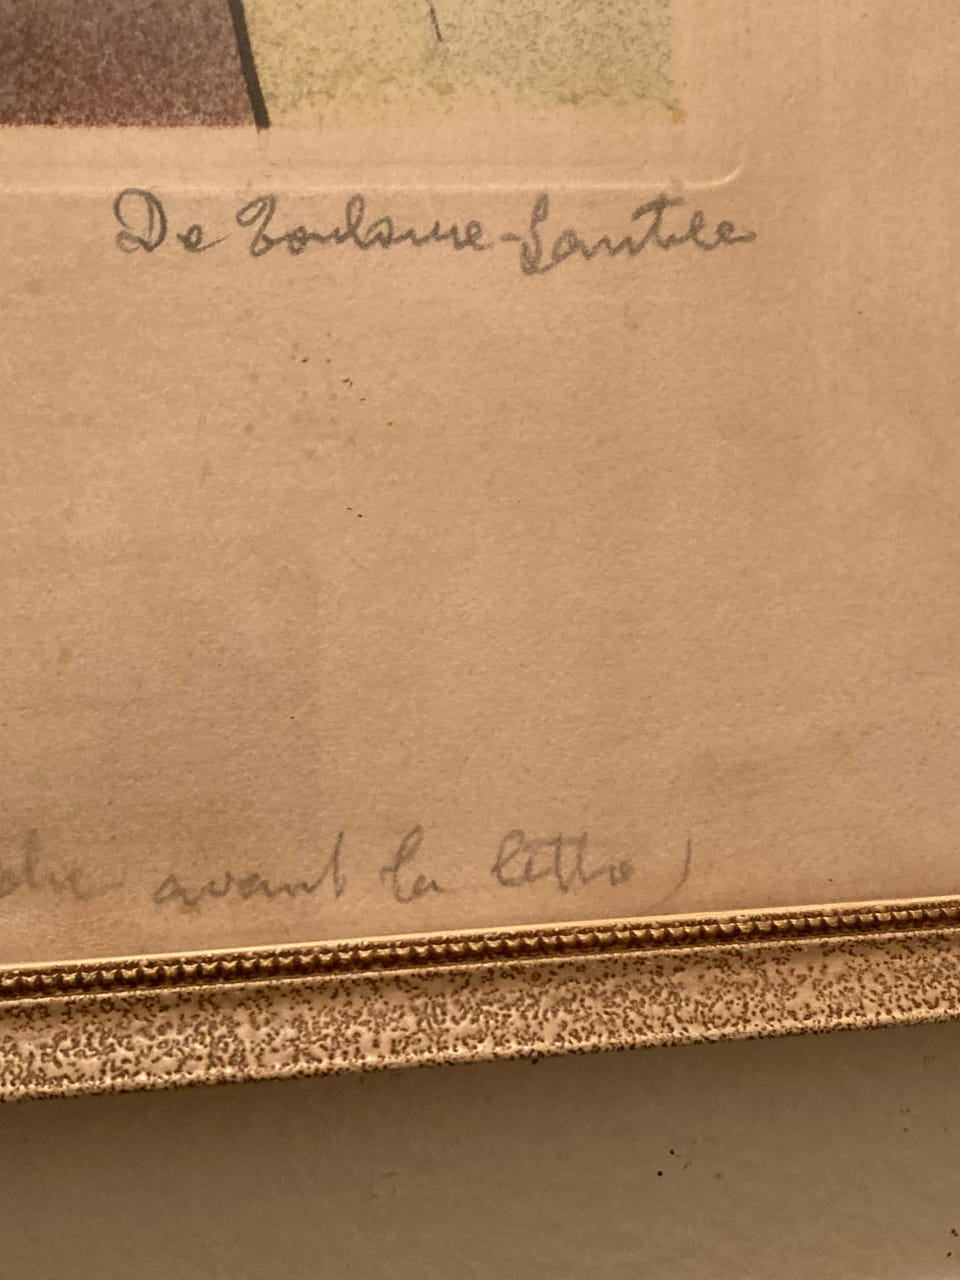 De Toulouse-Lautrec
avant la lettre)